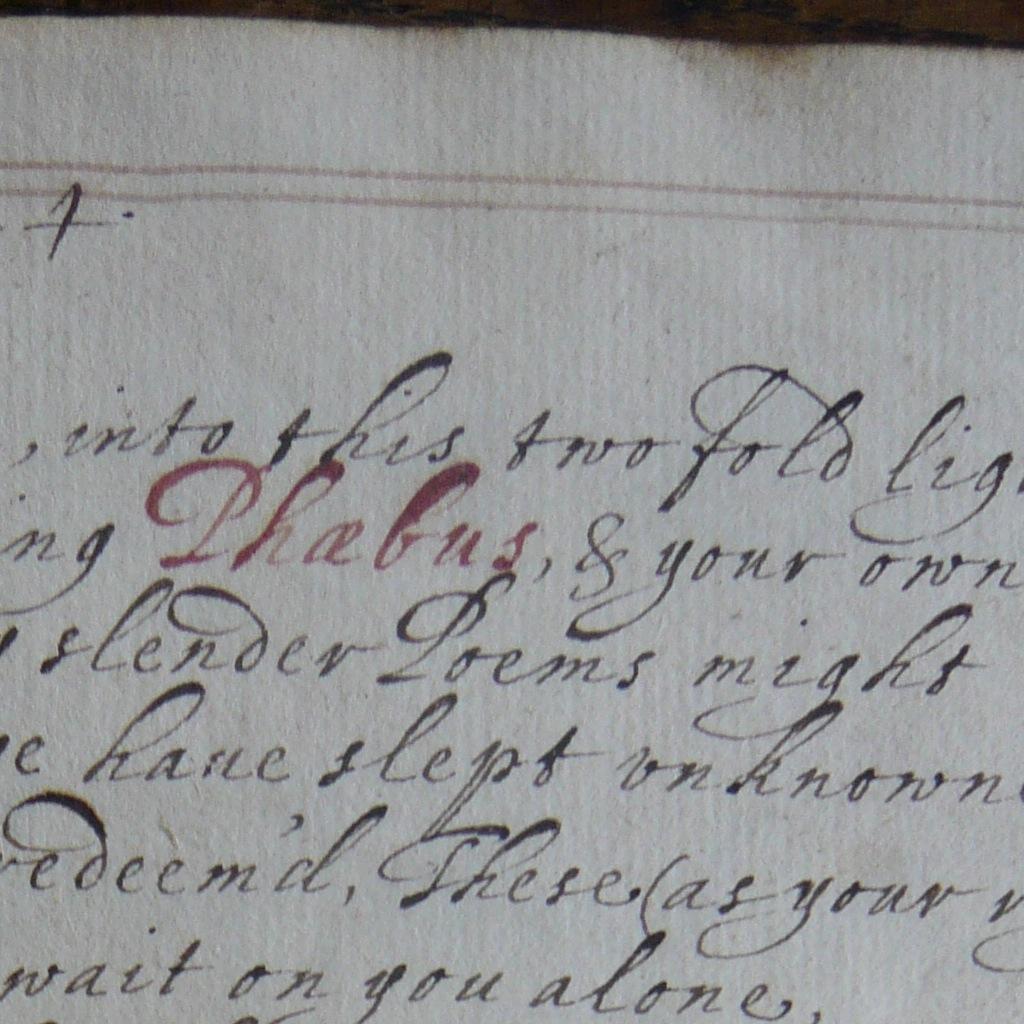 4.
, into this two fold lig
ing Phæbus, & your own
slender Poems might
haue slept vnknown
redeem'd, These (as your
wait on you alone,